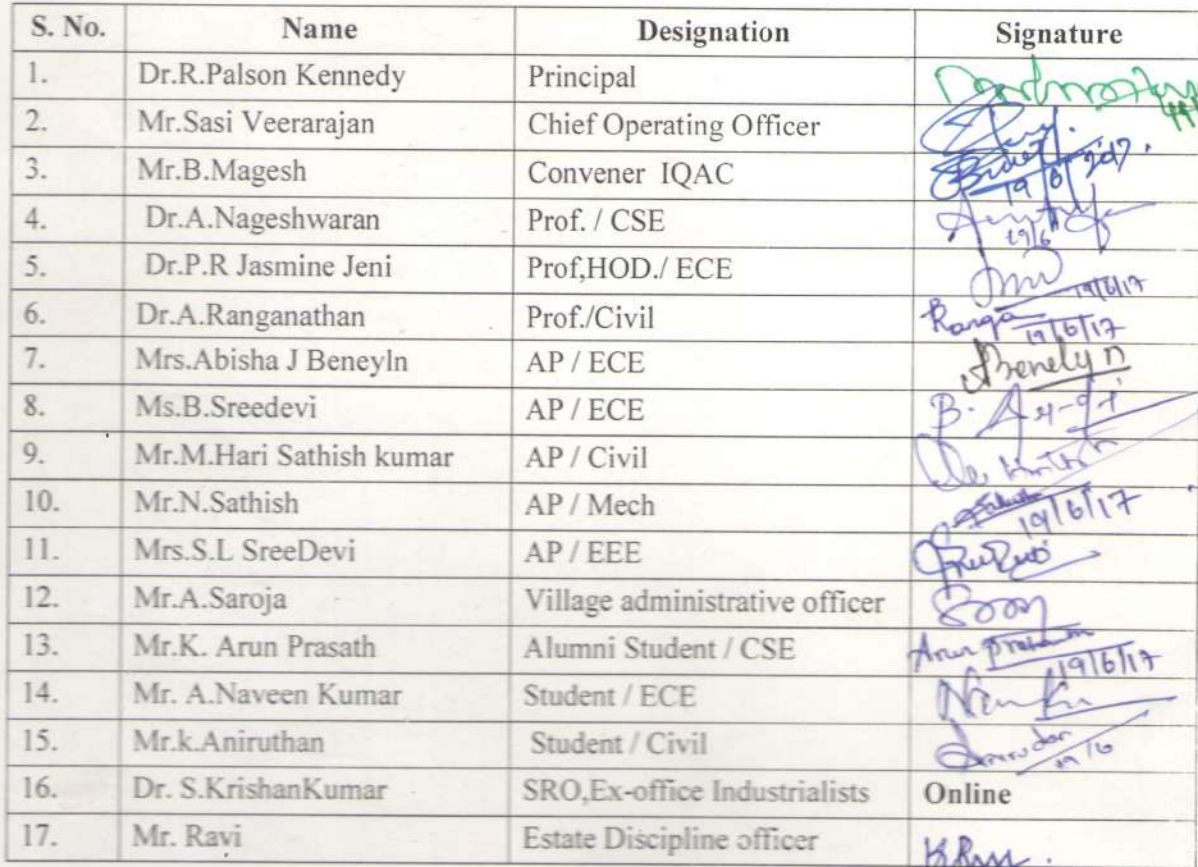 S. No. Name Designation Signature
1. Dr.R.Palson Kennedy Principal
2. Mr.Sasi Veerarajan Chief Operating Officer
3. Mr.B.Magesh Convener IQAC 19/6/2017.
4. Dr.A.Nageshwaran Prof. / CSE 19/6
5. Dr.P.R Jasmine Jeni Prof,HOD./ ECE 19/6/17
6. Dr.A.Ranganathan Prof./Civil Ranga 19/6/17
7. Mrs.Abisha J Beneyln AP / ECE
8. Ms.B.Sreedevi AP / ECE
9. Mr.M.Hari Sathish kumar AP / Civil
10. Mr.N.Sathish AP / Mech 19/6/17
11. Mrs.S.L SreeDevi AP / EEE
12. Mr.A.Saroja Village administrative officer
13. Mr.K. Arun Prasath Alumni Student / CSE Arun 19/6/17
14. Mr. A.Naveen Kumar Student / ECE
15. Mr.k.Aniruthan Student / Civil 19/6
16. Dr. S.KrishanKumar SRO,Ex-office Industrialists Online
17. Mr. Ravi Estate Discipline officer